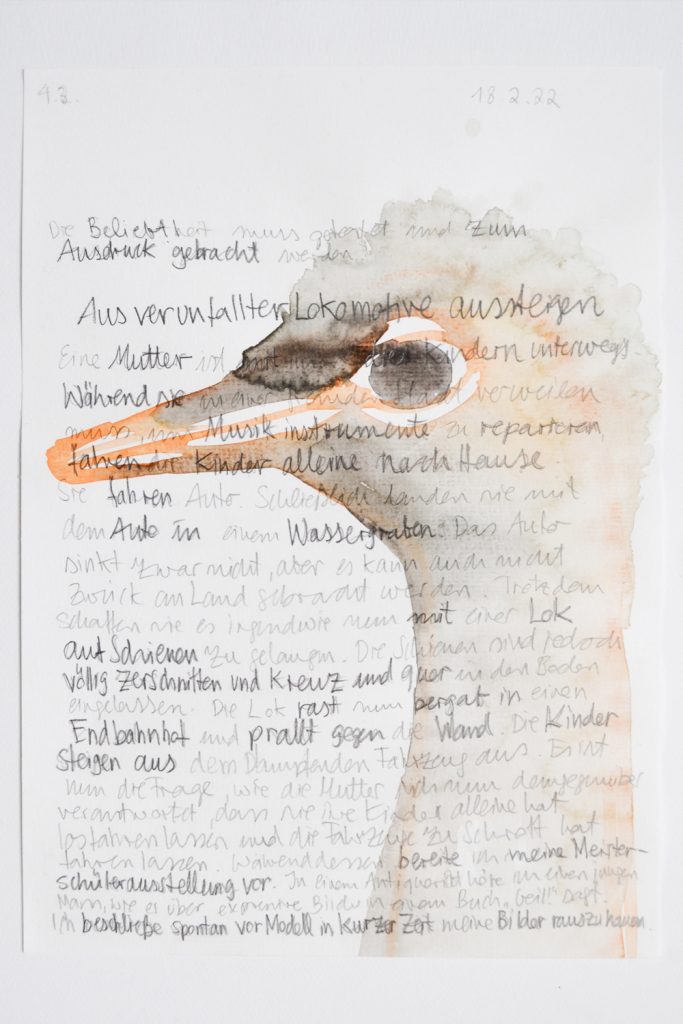 4.3. 18.2.22
Die Beliebtheit muss getestet und zum
Ausdruck gebracht werden
Aus verunfallter Lokomotive aussteigen
Eine Mutter ist mit Kindern unterwegs.
Während sie in einer fremden Stadt verweilen
muss, um Musikinstrumente zu reparieren,
fahren die Kinder alleine nach Hause.
Sie fahren Auto. Schließlich landen sie mit
dem Auto in einem Wassergraben. Das Auto
sinkt zwar nicht, aber es kann auch nicht
zurück an Land gebracht werden. Trotzdem
schaffen sie es irgendwie nun mit einer Lok
auf Schienen zu gelangen. Die Schienen sind jedoch
völlig zerschnitten und kreuz und quer in den Boden
eingelassen. Die Lok rast nun bergab in einen
Endbahnhof und prallt gegen die Wand. Die Kinder
steigen aus dem dampfenden Fahrzeug aus. Es ist
nun die Frage, wie die Mutter sich nun demgegenüber
verantwortet, dass sie ihre Kinder alleine hat
losfahren lassen und die Fahrzeuge zu Schrott hat
fahren lassen. Währenddessen bereite ich meine Meister-
schülerausstellung vor. In einem Antiquariat höre ich einen jungen
Mann, wie er über Bilder in einem Buch „Geil!" sagt.
Ich beschließe spontan vor Modell in kurzer Zeit meine Bilder rauszuhauen.